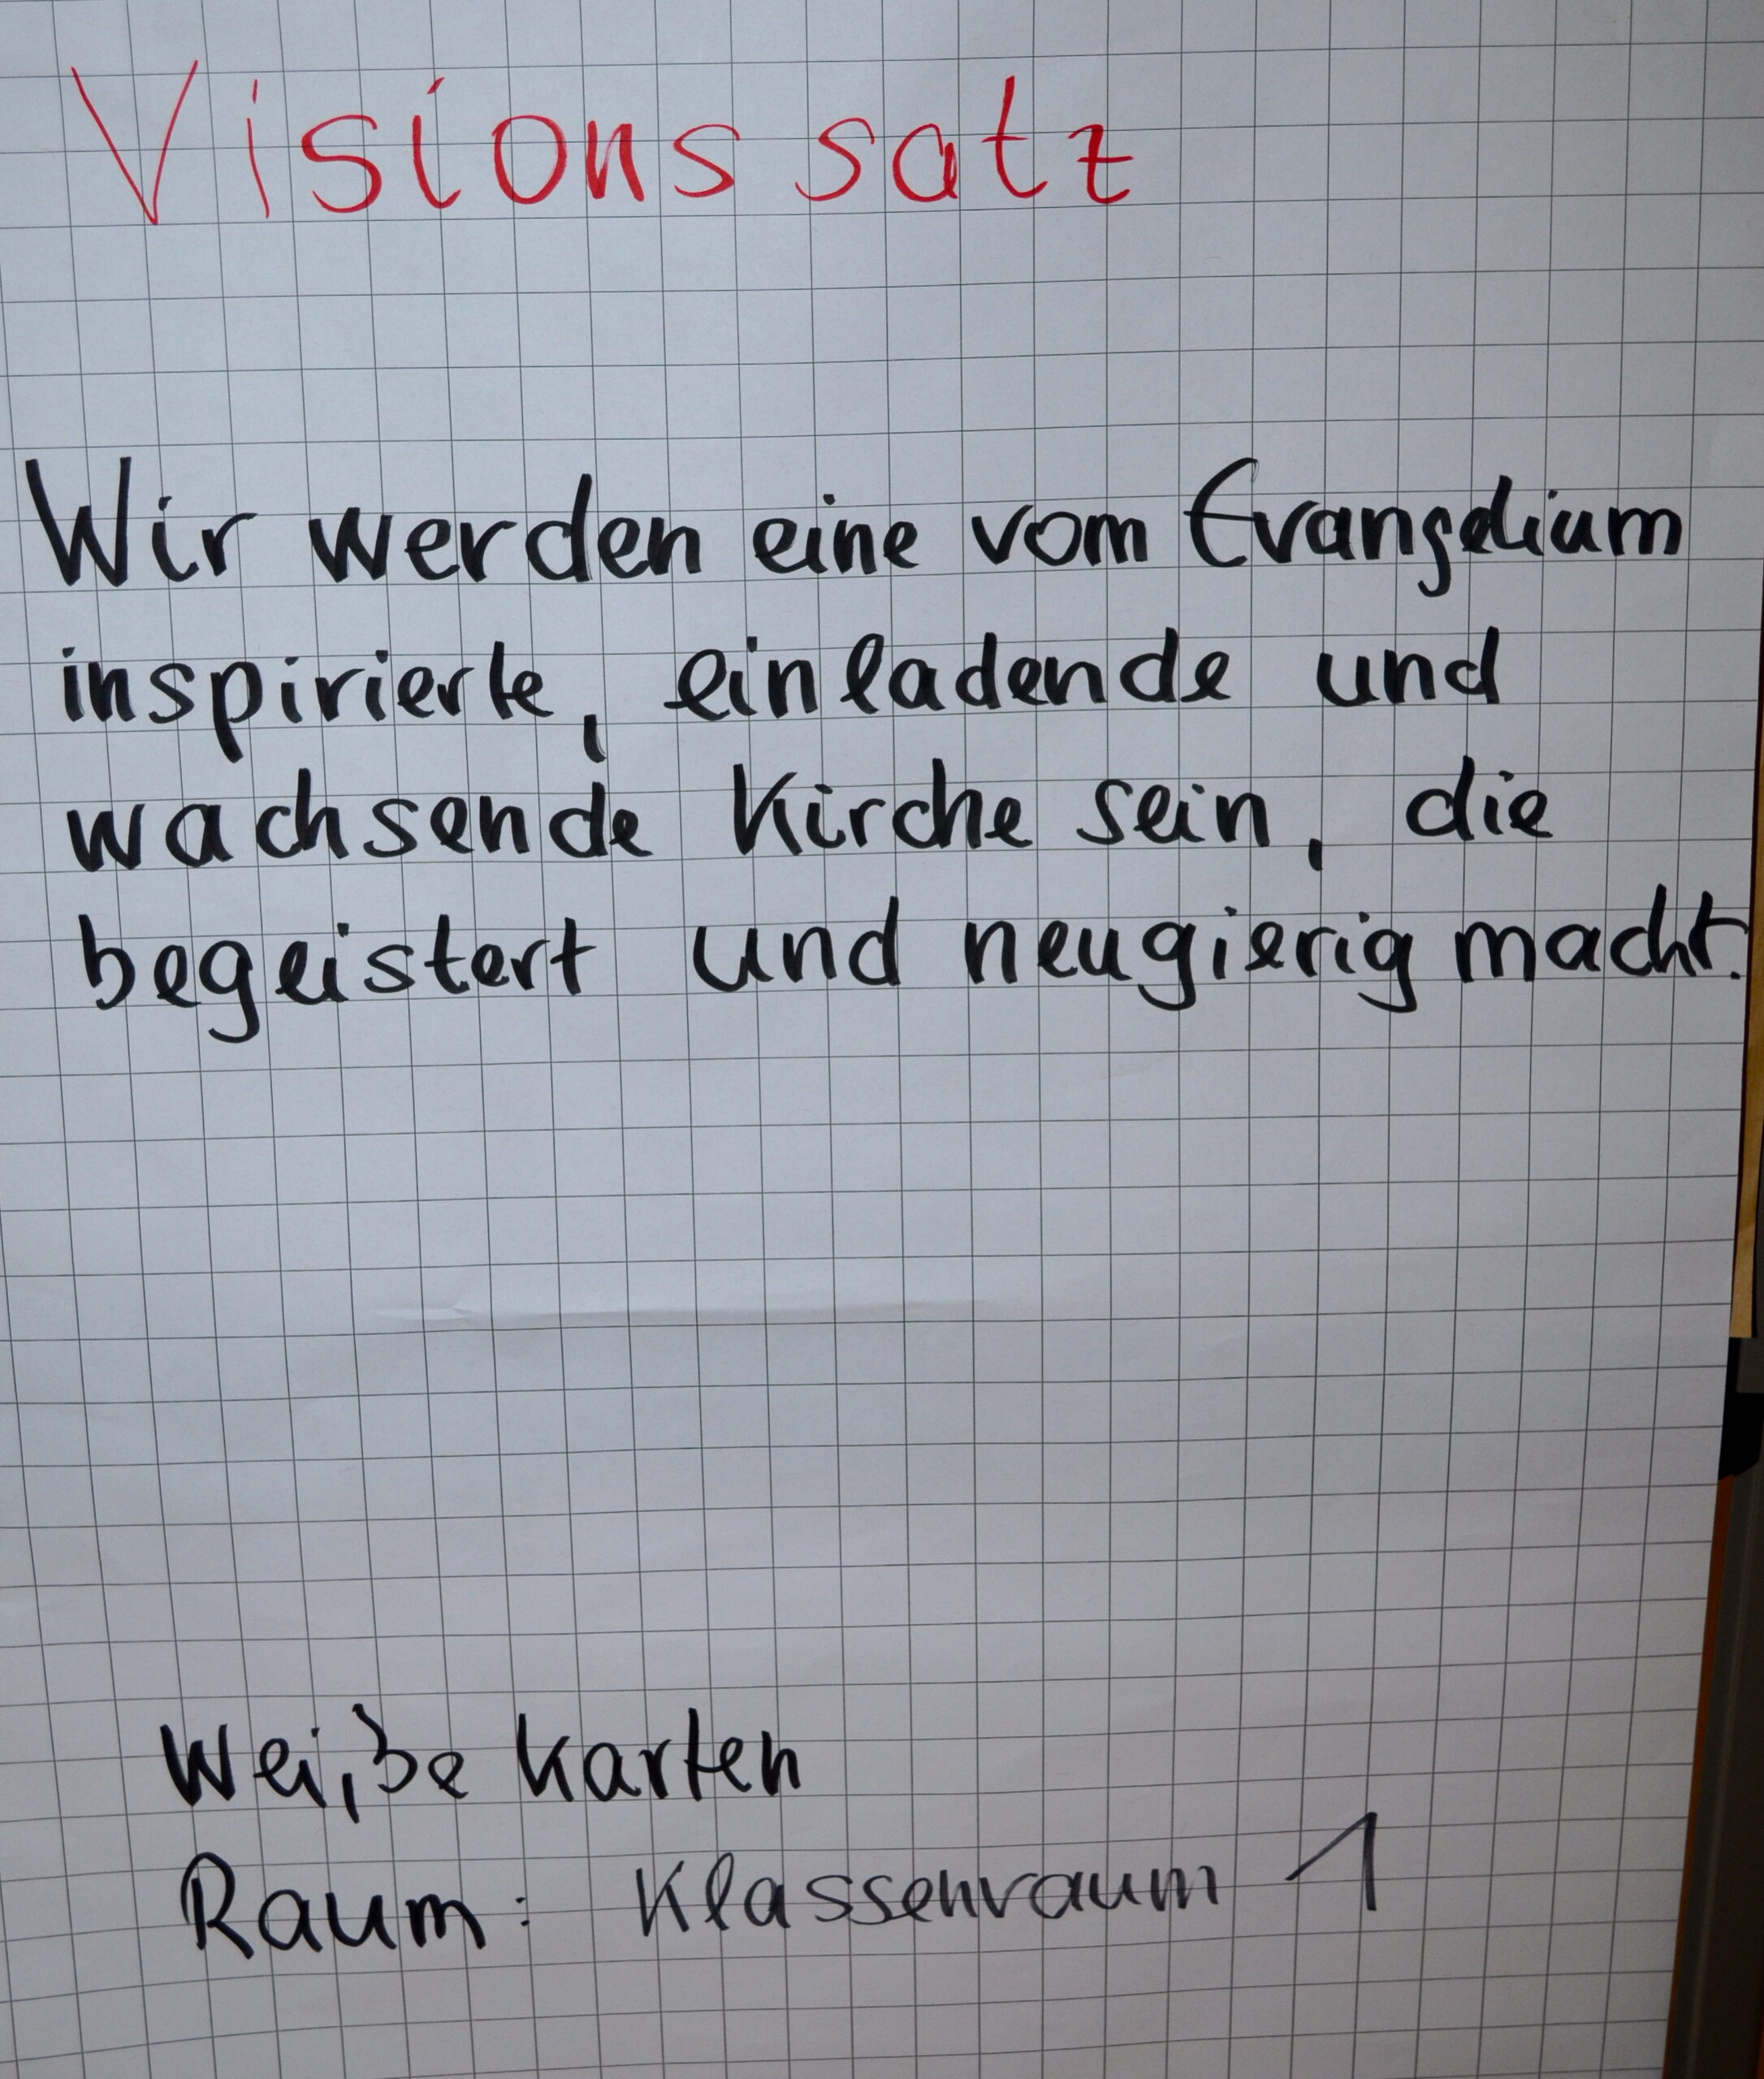 Visionssatz
Wir werden eine vom Evangelium
inspirierte, einladende und
wachsende Kirche sein, die
begeistert und neugierig macht.
Weiße Karten
Raum: Klassenraum 1